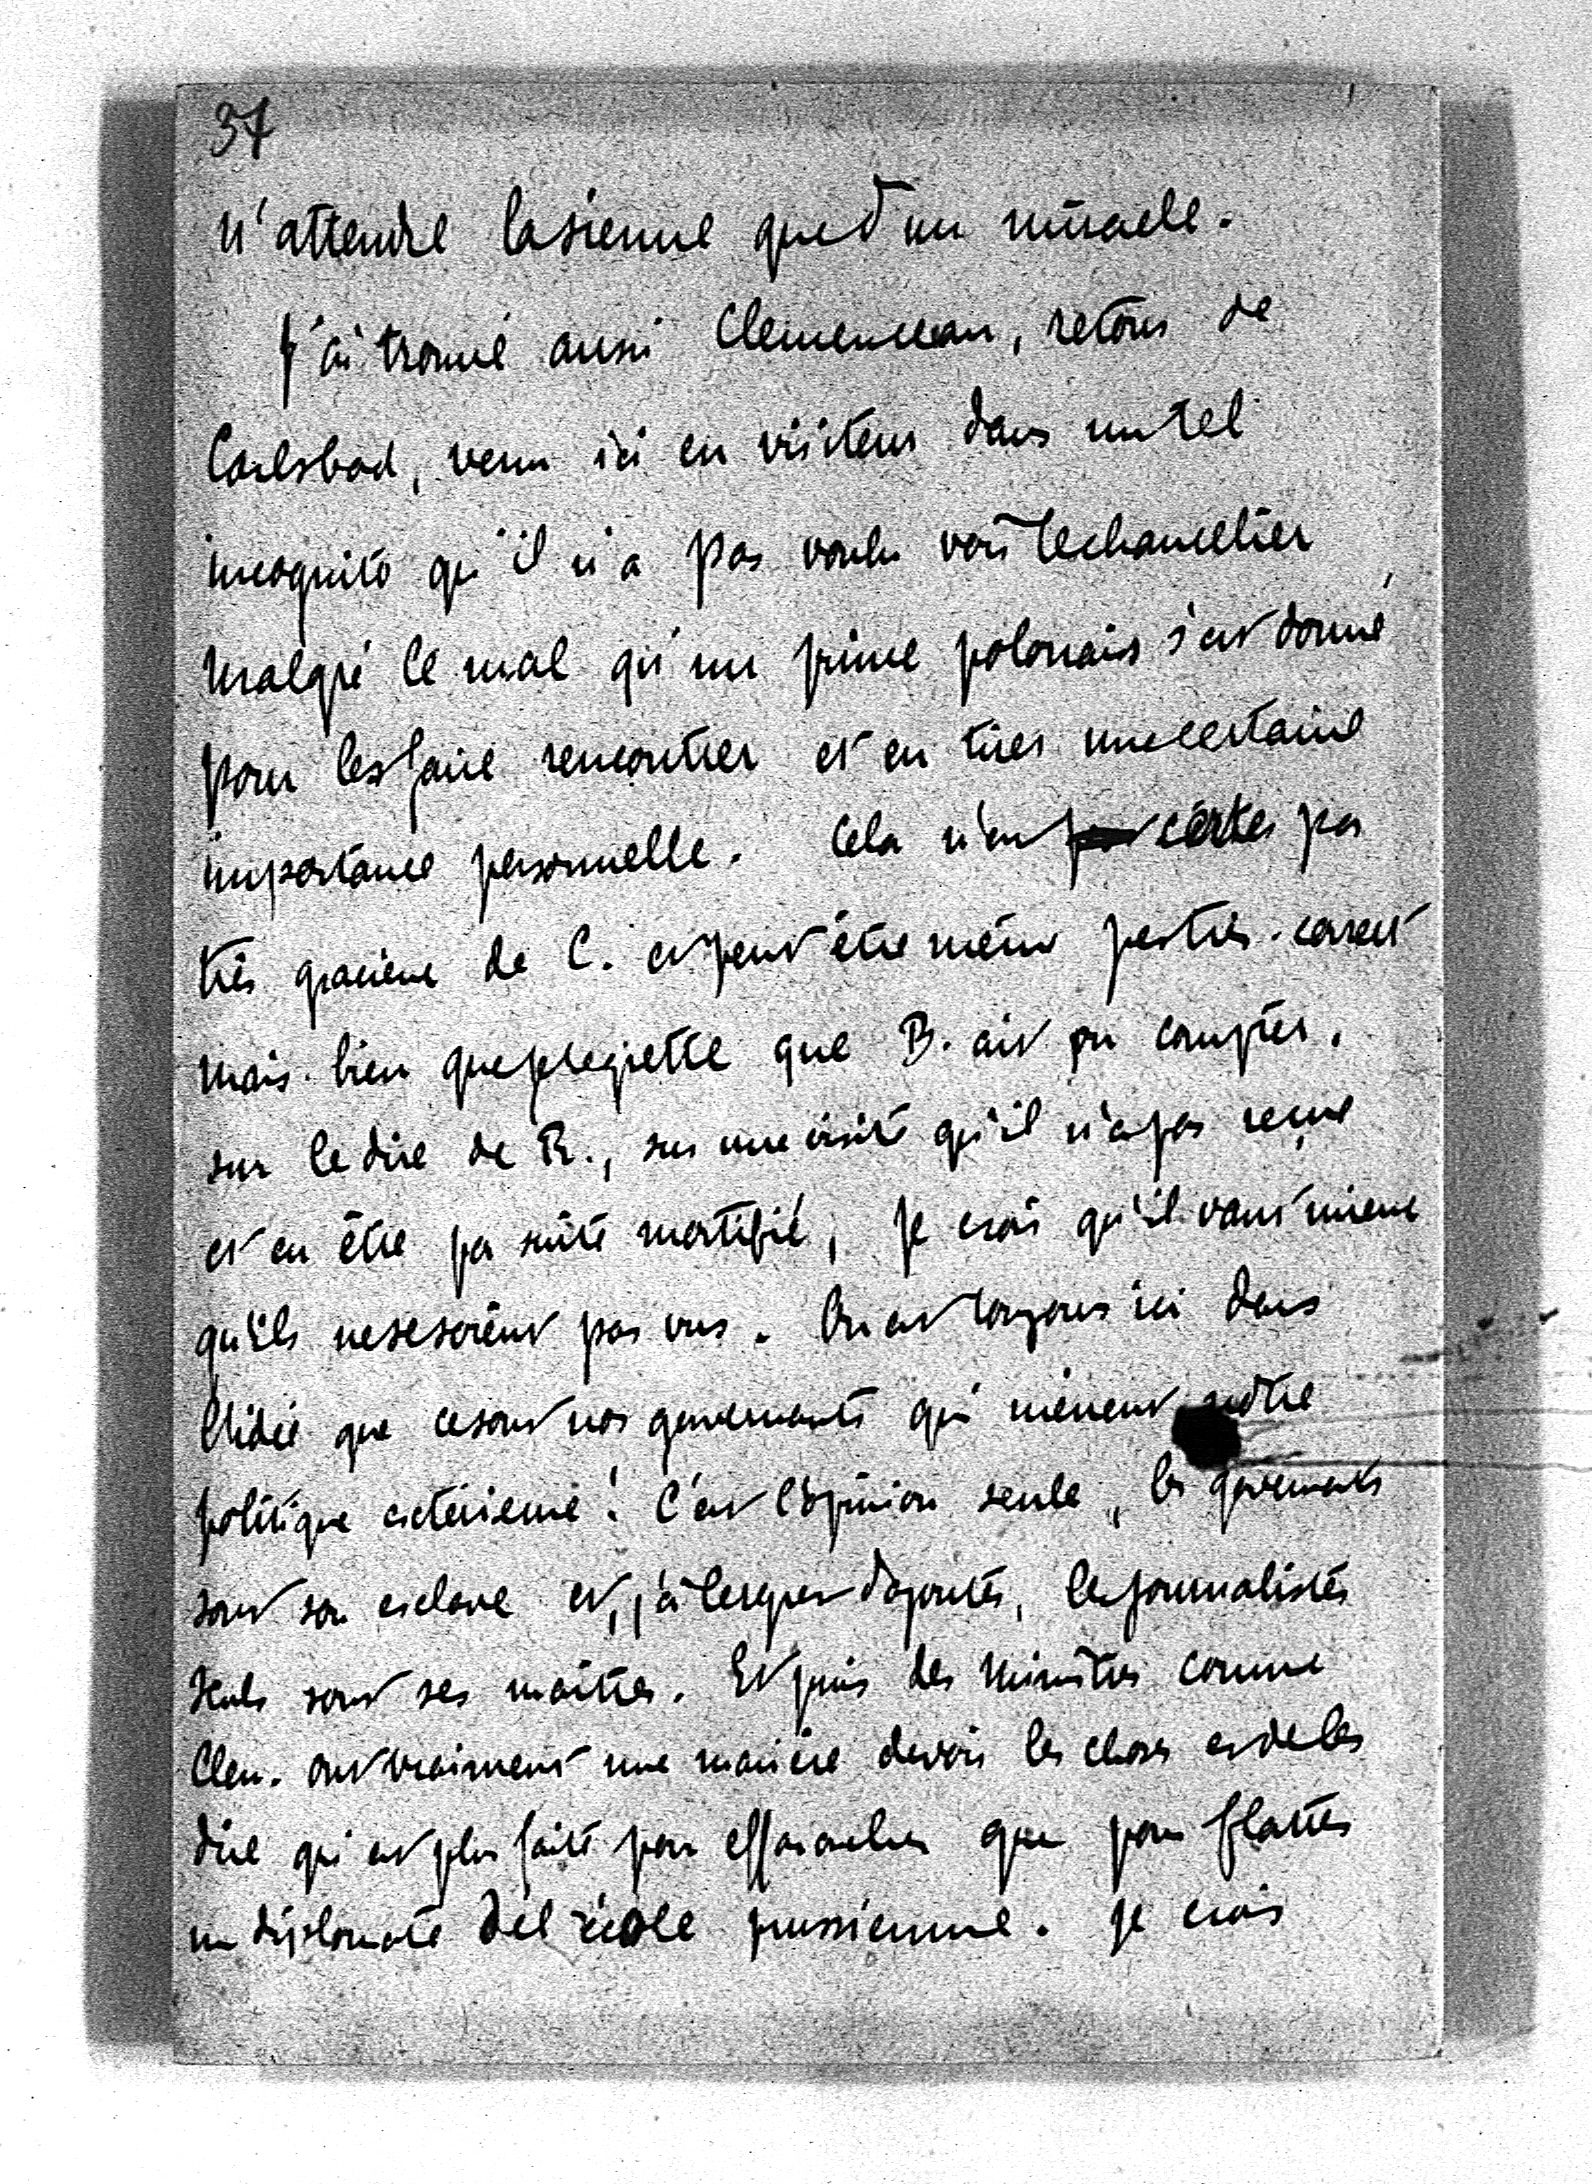 37
n'attendre la sienne que d'un miracle.
J'ai trouvé aussi Clemenceau, retour de
Carlsbad, venu ici en visiteur dans un tel
incognito qu'il n'a pas voulu voir le chancelier,
malgré le mal qu'un prince polonais s'est donné
pour les faire rencontrer et en tirer une certaine
importance personnelle. Cela n'est certes pas
très gracieux de C. et peut être même pas très-correct
mais bien que je regrette que B. ait pu compter,
sur le dire de R., sur une visite qu'il n'a pas reçue
et en être par suite mortifié, je crois qu'il vaut mieux
qu'ils ne se soient pas vus. On est toujours ici dans
l'idée que ce sont nos gouvernants qui mènent notre
politique extérieure! C'est l'opinion seule, les gouvernants
sont son esclave et, j'ai le regret d'ajouter, les journalistes
seuls sont ses maîtres. Et puis des ministres comme
Clem. ont vraiment une manière de voir les choses et de les
dire qui est plus faite pour effaroucher que pour flatter
un diplomate de l'école prussienne. Je crois